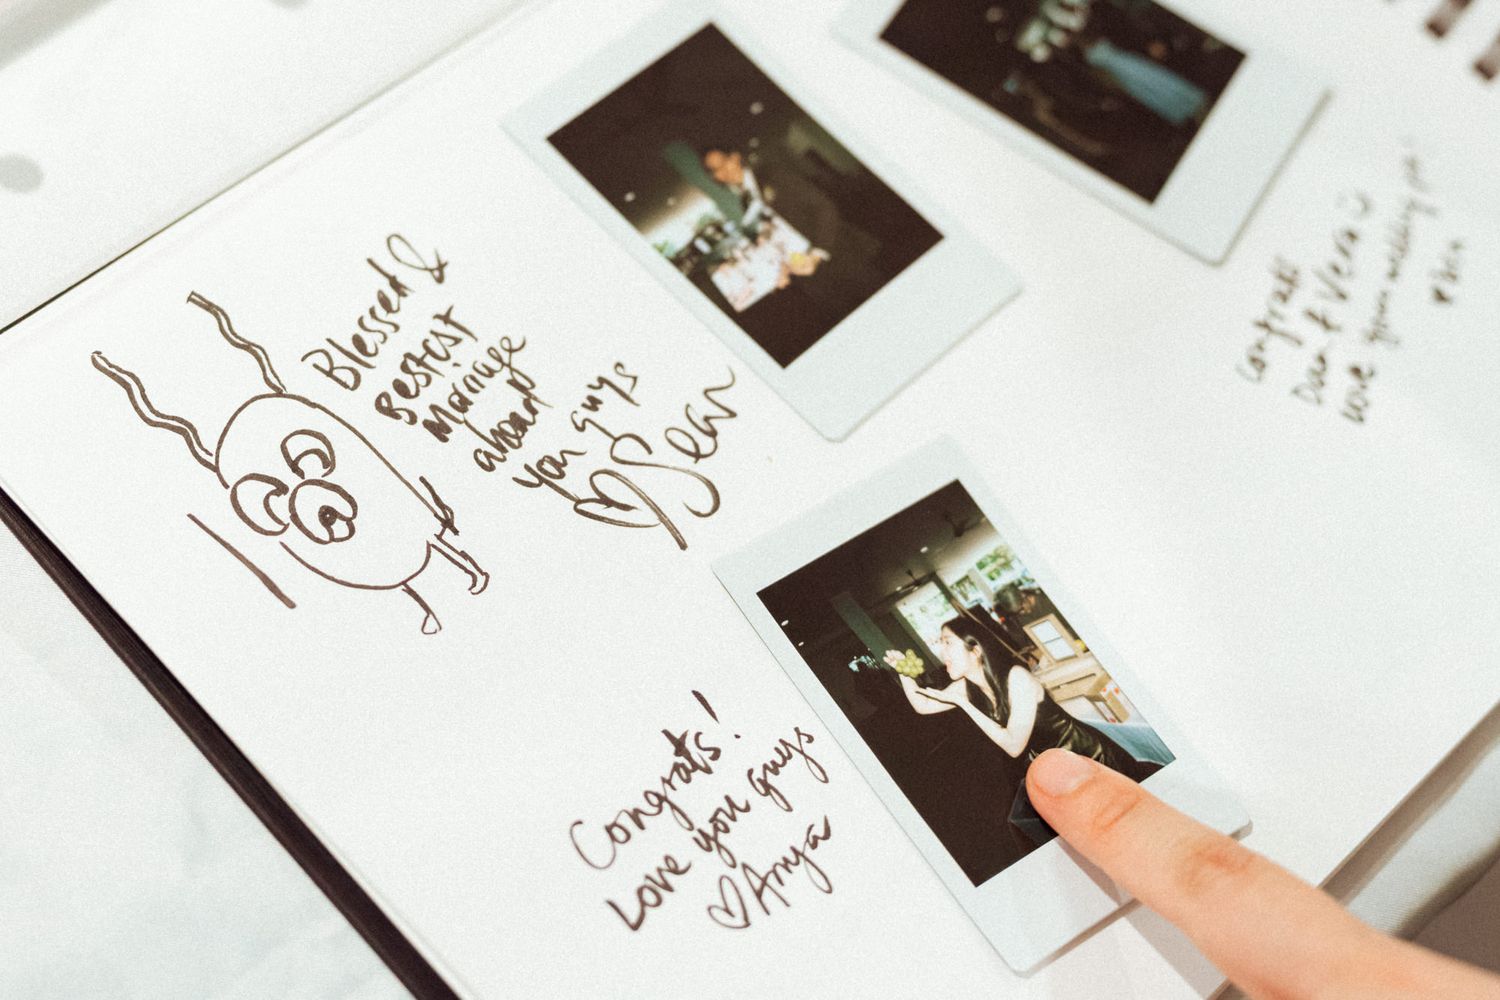 Blessed &
Bestest
Marriage
ahead
you guys
♡ Sean
Congrats!
Love you guys
♡ Anya
Congrats
Dan & Vera
love